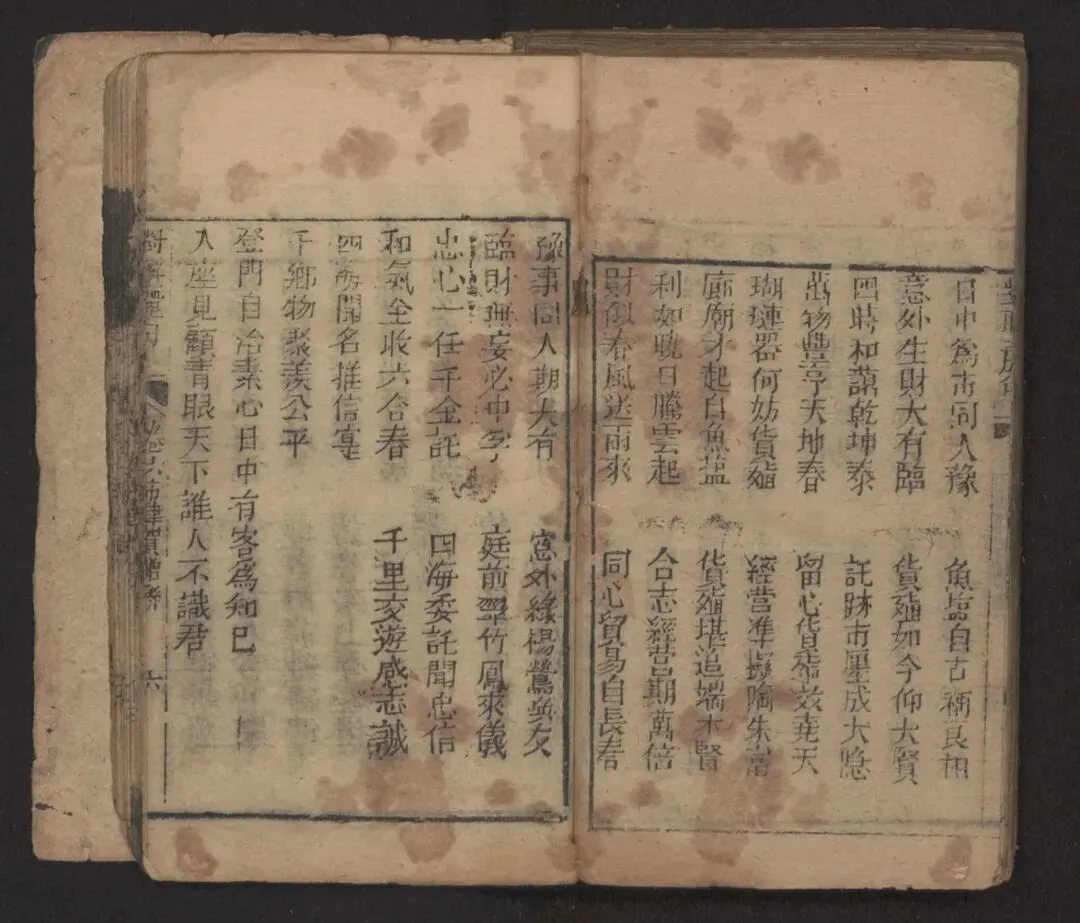 日中為市同人豫
魚塩自古稱良相
意外生財大有臨
貨殖如今仰大賢
四時和藹乾坤泰
託跡市廛成大隱
萬物豐亨天地春
留心貨殖效堯天
瑚璉器何妨貨殖
經營準擬陶朱富
廊廟才起自魚塩
貨殖堪追端木賢
利如曉日騰雲起
合志經營期萬倍
財似春風送雨來
同心貿易自長春
豫事同人期大有
窓外綠楊鶯與友
臨財無妄必中孚
庭前翠竹鳳來儀
忠心一任千金託
四海委託聞忠信
和氣全收六合春
千里交遊感志誠
四海聞名推信寔
千鄉物聚羨公平
登門自治素心日中有客為知己
入座見顧青眼天下誰人不識君
六